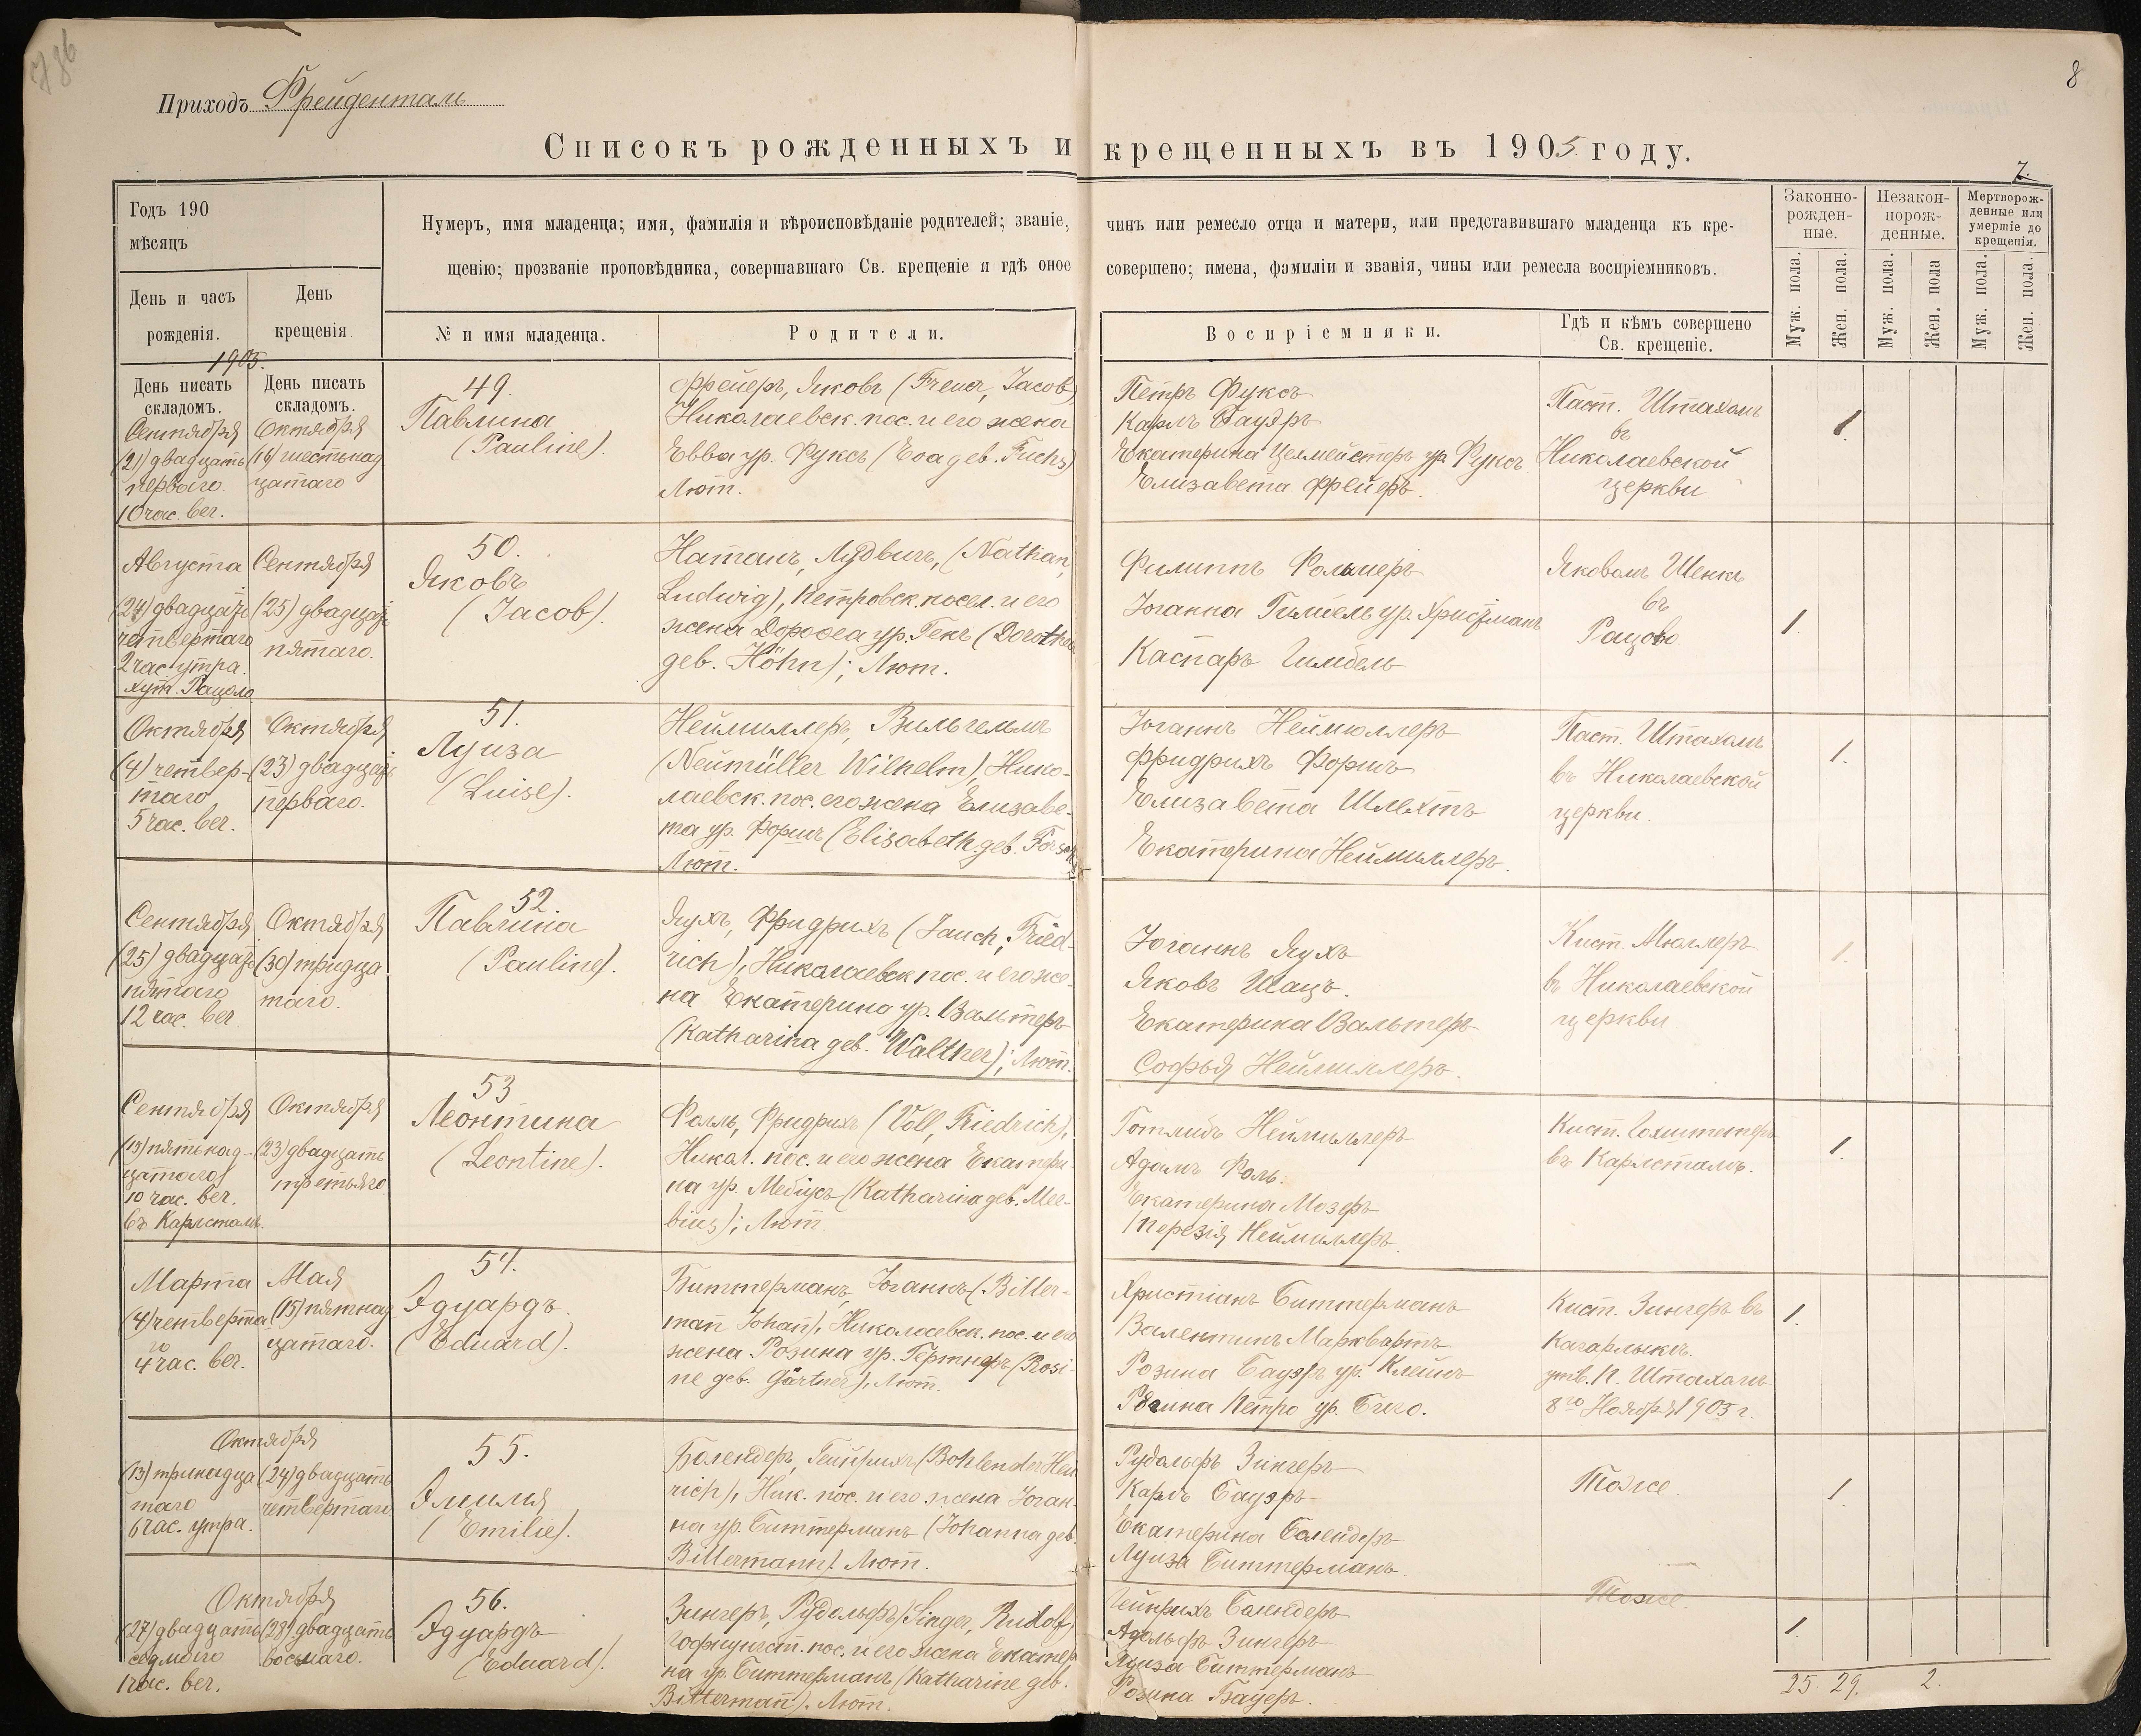 786
8
Приходъ Фрейденталь
Списокъ рожденныхъ и крещенныхъ въ 1905 году.
7.
Годъ 190
мѣсяцъ
Нумеръ, имя младенца; имя, фамилія и вѣроисповѣданіе родителей; званіе, чинъ или ремесло отца и матери, или представившаго младенца къ кре-
щенію; прозваніе проповѣдника, совершавшаго Св. крещеніе и гдѣ оное совершено; имена, фамиліи и званія, чины или ремесла воспріемниковъ.
Законно-
рожден-
ные.
Незакон-
норож-
денные.
Мертворож-
денные или
умершіе до
крещенія.
День и часъ
рожденія.
День
крещенія
№ и имя младенца.
Родители.
Воспріемники.
Гдѣ и кѣмъ совершено
Св. крещеніе.
Муж. пола.
Жен. пола.
Муж. пола.
Жен. пола
Муж. пола.
Жен. пола.
1905.
День писать
складомъ.
День писать
складомъ.
Сентября
(21) двадцать
перваго
10 час. веч.
Октября
(16) шестьнад
цатаго
49.
Павлина
(Pauline).
Фрейеръ, Яковъ (Freuer, Jacob)
Николаевск. пос. и его жена
Евва ур. Фуксъ (Eva geb. Fuchs)
Лют.
Петръ Фуксъ
Карлъ Бауэръ
Екатерина Целмейстеръ ур. Фуксъ
Елизавета Фрейеръ.
Паст. Штахомъ
въ
Николаевской
церкви
1.
Августа
(24) двадцать
четвертаго
2 час. утра.
хут. Рацово
Сентября
(25) двадцать
пятаго.
50.
Яковъ
(Jacob).
Натанъ, Лудвигъ, (Nathan,
Ludwig), Петровск. посел. и его
жена Дороѳеа ур. Генъ (Dorothea
geb. Höhn); Лют.
Филиппъ Фольмеръ
Іоганна Гимбель ур. Христманъ
Каспаръ Гимбель
Яковомъ Шенкъ
въ
Рацово
1.
Октября
(4) четвер-
таго
5 час. веч.
Октября
(23) двадцать
перваго.
51.
Луиза
(Luise).
Неймиллеръ, Вильгельмъ
(Neumüller Wilhelm), Нико-
лаевск. пос. его жена Елизаве-
та ур. Форшъ (Elisabeth geb. Forsch)
Лют.
Іоганнъ Неймюллеръ
Фридрихъ Форшъ
Елизавета Шлехтъ
Екатерина Неймиллеръ.
Паст. Штахомъ
въ Николаевской
церкви.
1.
Сентября
(25) двадцать
пятаго
12 час. веч.
Октября
(30) тридца
таго.
52.
Павлина
(Pauline).
Яухъ, Фридрихъ (Jauch, Fried-
rich), Николаевск пос. и его же-
на Екатерина ур. Вальтеръ
(Katharina geb. Walther); Лют.
Іоганнъ Яухъ
Яковъ Шацъ.
Екатерина Вальтеръ
Софья Неймиллеръ.
Кист. Мюллеръ
въ Николаевской
церкви
1.
Сентября
(15) пятнад-
цатаго
10 час. веч.
въ Карлсталь.
Октября
(23) двадцать
третьяго
53
Леонтина
(Leontine).
Фолль, Фридрихъ (Voll, Friedrich),
Никол. пос. и его жена Екатери-
на ур. Мебіусъ (Katharina geb. Moe-
bius); Лют.
Готлибъ Неймиллеръ
Адамъ Фоль.
Екатерина Мозеръ
Терезія Неймиллеръ.
въ Карлсталъ.
1.
Марта
(4) четверта
го
4 час. веч.
Мая
(15) пятнад
цатаго.
54.
Эдуардъ.
(Eduard).
Биттерманъ, Іоганнъ (Bitter-
man̄ Johan̄), Николаевск. пос. и его
жена Розина ур. Гертнеръ (Rosi-
ne geb. Gärtner), Лют.
Христіанъ Биттерманъ
Валентинъ Марквартъ
Розина Бауэръ ур. Клейнъ
Регина Петро ур. Биго.
Кист. Зингеръ въ
Кагарлыкъ.
утв. П. Штахомъ
8го Ноября 1905 г.
1.
Октября
(13) тринадца
таго
6 час. утра.
(24) двадцать
четвертаго
55.
Эмилія
(Emilie).
Болендеръ, Гейнрихъ (Bohlender Hein
rich), Ник. пос. и его жена Іоган-
на ур. Биттерманъ (Johanna geb.
Bittermann). Лют.
Рудольфъ Зингеръ
Карлъ Бауэръ
Екатерина Болендеръ
Луиза Биттерманъ.
Тоже.
1.
Октября
(27) двадцать
седмого
1 час. веч.
(28) двадцать
восьмаго.
56.
Эдуардъ
(Eduard).
Зингеръ, Рудольфъ (Singer, Rudolf)
пос. и его жена Екатер
на ур. Биттерманъ (Katharine geb.
Bitterman̄). Лют.
Гейнрихъ Болендеръ
Адольфъ Зингеръ
Луиза Биттерманъ
Розина Бауеръ.
Тоже.
1.
25. 29. 2.